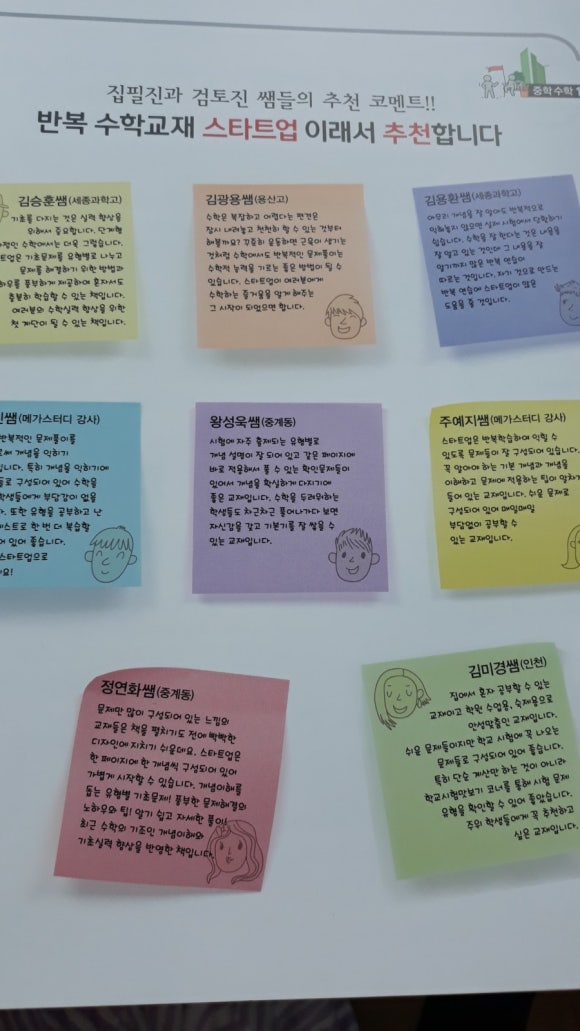 중학 수학 1
집필진과 검토진 쌤들의 추천 코멘트!!
반복 수학교재 스타트업 이래서 추천합니다
김승훈쌤(세종과학고)
기초를 다지는 것은 실력 향상을
위해서 중요합니다. 단계형
과정인 수학에서는 더욱 그렇습니다.
트업은 기초문제를 유형별로 나누고
문제를 해결하기 위한 방법과
하우를 풍부하게 제공하여 혼자서도
충분히 학습할 수 있는 책입니다.
여러분의 수학실력 향상을 위한
첫 계단이 될 수 있는 책입니다.
김광용쌤(용산고)
수학은 복잡하고 어렵다는 편견은
잠시 내려놓고 천천히 할 수 있는 것부터
해볼까요? 꾸준히 운동하면 근육이 생기는
것처럼 수학에서도 반복적인 문제풀이는
수학적 능력을 기르는 좋은 방법이 될 수
있습니다. 스타트업이 여러분에게
수학하는 즐거움을 알게 해주는
그 시작이 되었으면 합니다.
김용환쌤(세종과학고)
아무리 개념을 잘 알아도 반복적으로
익혀놓지 않으면 실제 시험에서 당황하기
쉽습니다. 수학을 잘 한다는 것은 내용을
잘 알고 있는 것인데 그 내용을 잘
알기까지 많은 반복 연습이
따르는 것입니다. 자기 것으로 만드는
반복 연습에 스타트업이 많은
도움을 줄 것입니다.
쌤(메가스터디 강사)
반복적인 문제풀이를
로써 개념을 익히기
입니다. 특히 개념을 익히기에
들로 구성되어 있어 수학을
학생들에게 부담감이 없을
다. 또한 유형을 공부하고 난
테스트로 한 번 더 복습할
어 있어 좋습니다.
스타트업으로
요!
왕성욱쌤(중계동)
시험에 자주 출제되는 유형별로
개념 설명이 잘 되어 있고 같은 페이지에
바로 적용해서 풀 수 있는 확인문제들이
있어서 개념을 확실하게 다지기에
좋은 교재입니다. 수학을 두려워하는
학생들도 차근차근 풀어나가다 보면
자신감을 갖고 기본기를 잘 쌓을 수
있는 교재입니다.
주예지쌤(메가스터디 강사)
스타트업은 반복학습하여 익힐 수
있도록 문제들이 잘 구성되어 있습니다.
꼭 알아야 하는 기본 개념과 개념을
이해하고 문제에 적용하는 팁이 알차게
들어 있는 교재입니다. 쉬운 문제로
구성되어 있어 매일매일
부담없이 공부할 수
있는 교재입니다.
정연화쌤(중계동)
문제만 많이 구성되어 있는 느낌의
교재들은 책을 펼치기도 전에 빡빡한
디자인에 지치기 쉬운데요. 스타트업은
한 페이지에 한 개념씩 구성되어 있어
가볍게 시작할 수 있습니다. 개념이해를
돕는 유형별 기초문제! 풍부한 문제해결의
노하우와 팁! 알기 쉽고 자세한 풀이!
최근 수학의 기조인 개념이해와
기초실력 향상을 반영한 책입니다.
김미경쌤(인천)
집에서 혼자 공부할 수 있는
교재이고 학원 수업용, 숙제용으로
안성맞춤인 교재입니다.
쉬운 문제들이지만 학교 시험에 꼭 나오는
문제들로 구성되어 있어 좋습니다.
특히 단순 계산만 하는 것이 아니라
학교시험맛보기 코너를 통해 시험 문제
유형을 확인할 수 있어 좋았습니다.
주위 학생들에게 꼭 추천하고
싶은 교재입니다.